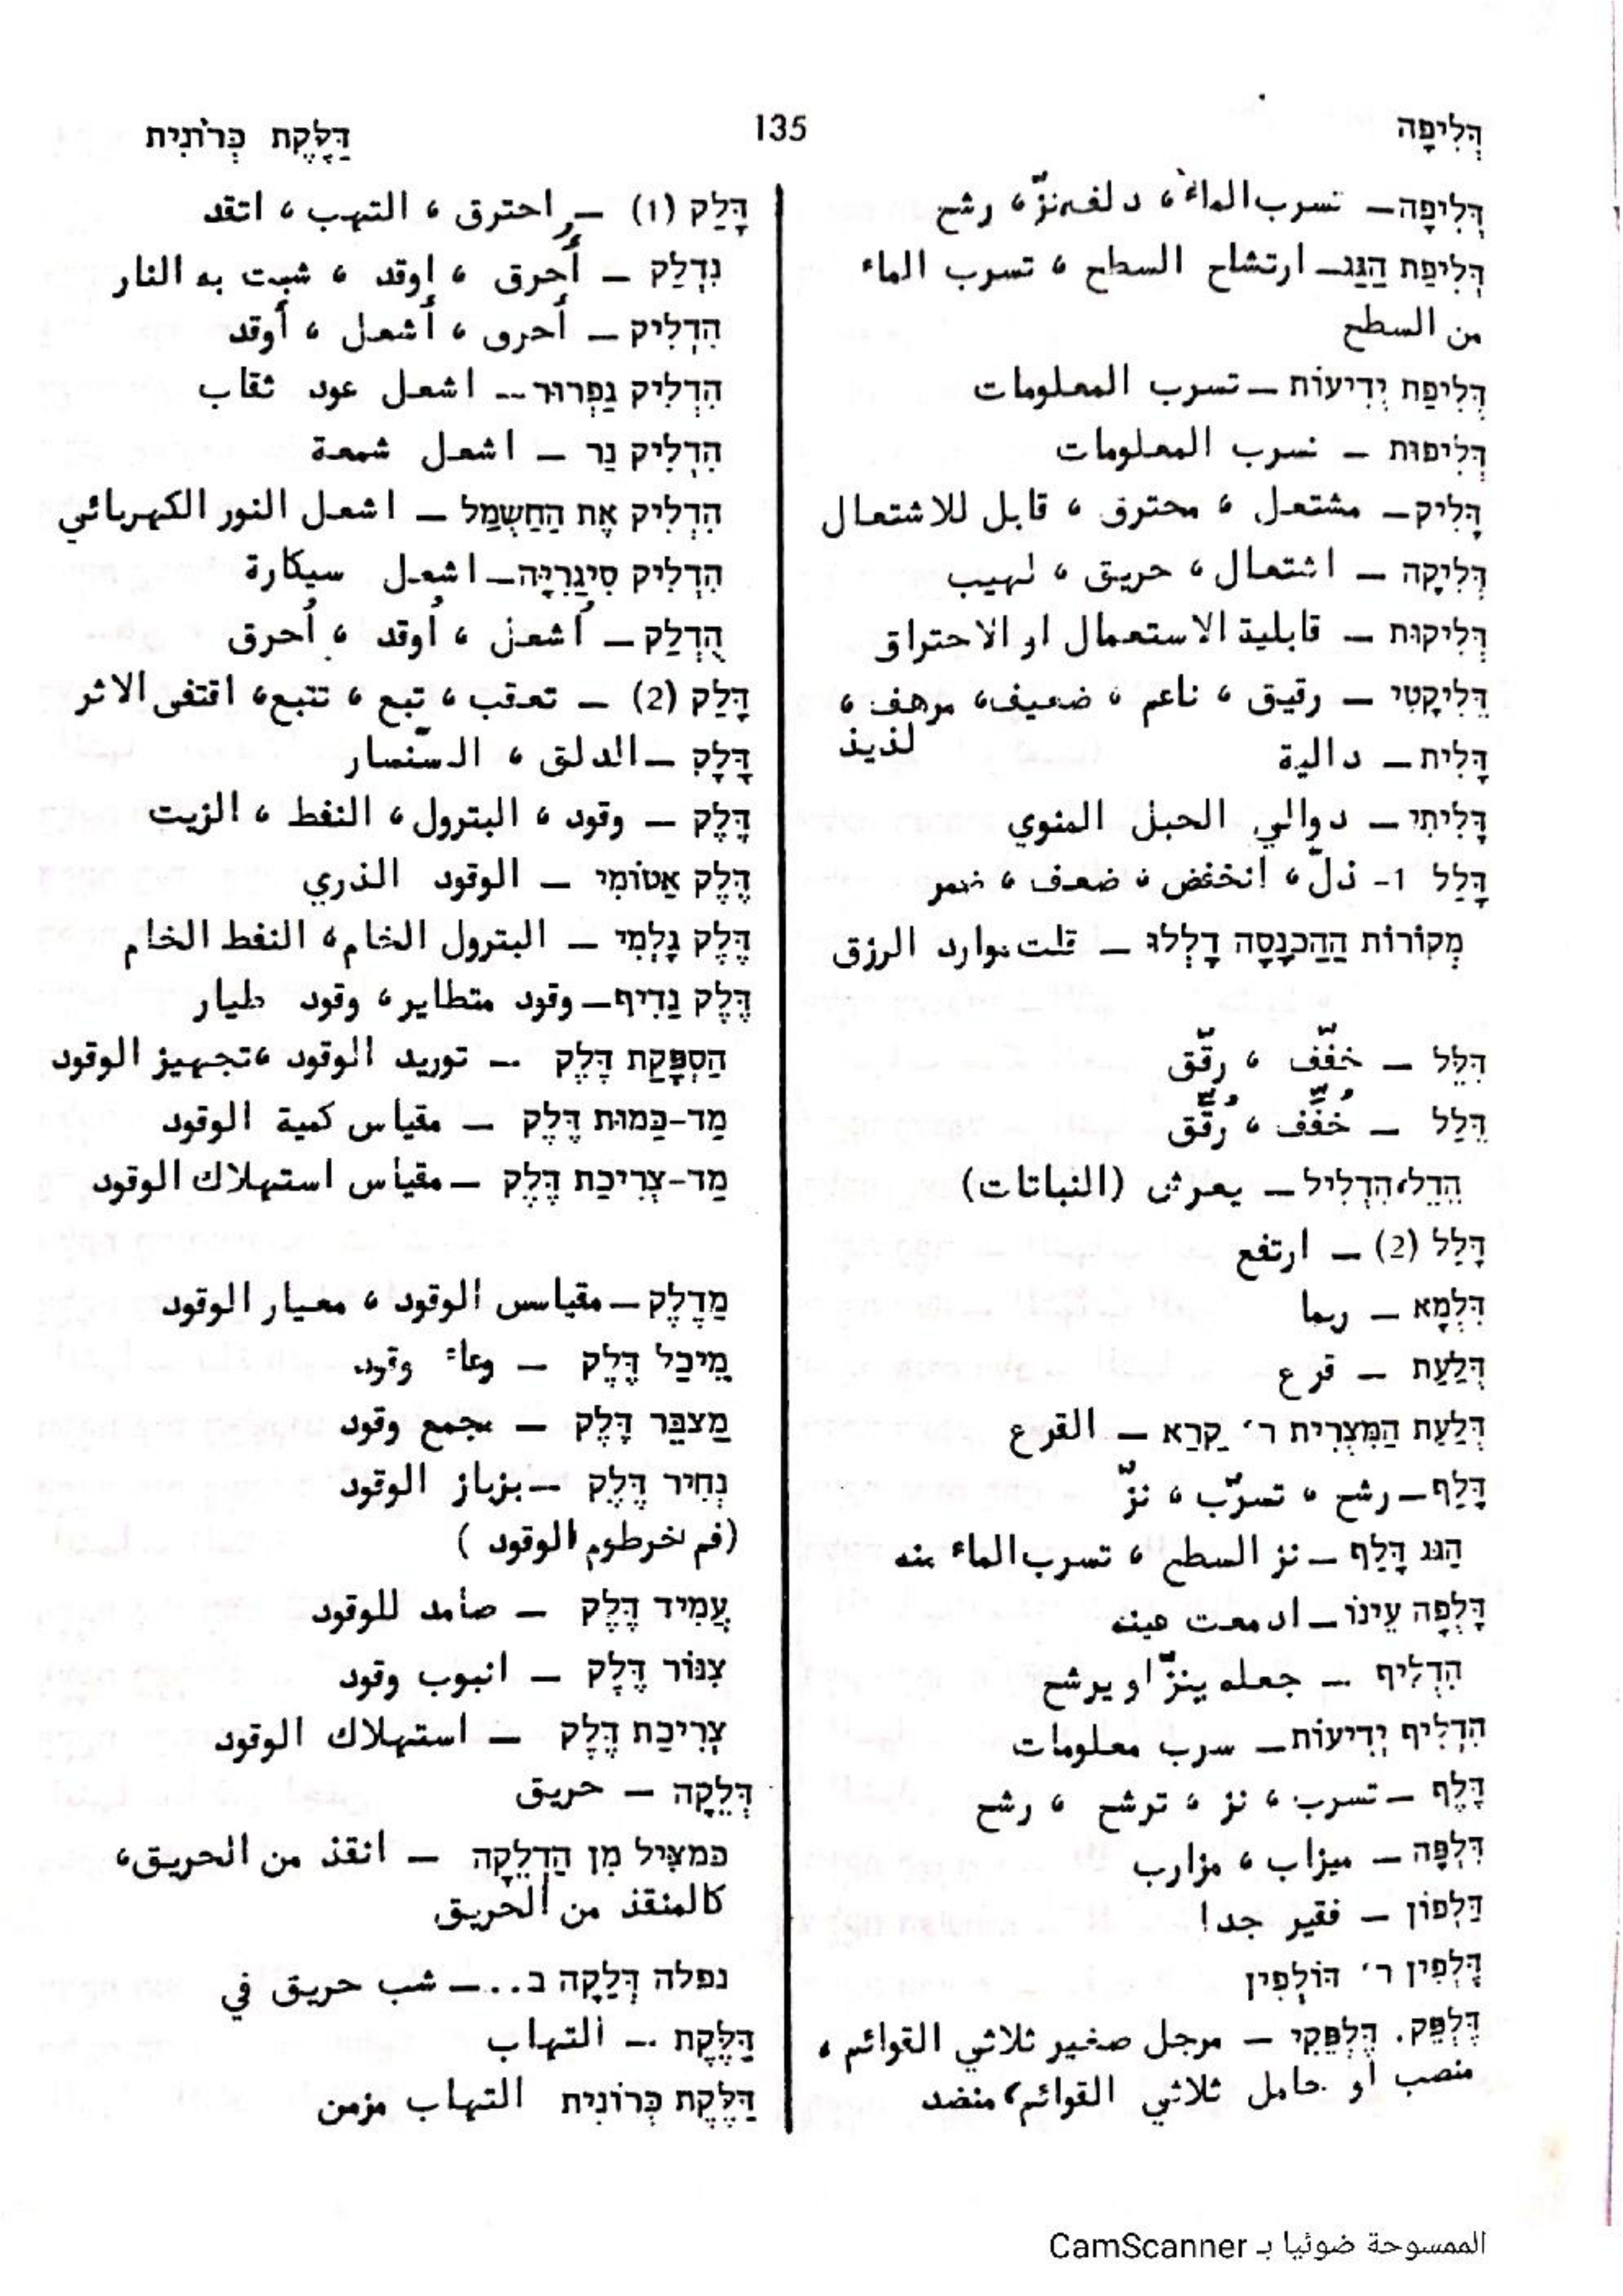 דְּלִיפָה
135
דַּלֶּקֶת כְּרוֹנִית
דְּלִיפָה – تسرب الماء ، دلف، نزّ ، رشح
דְּלִיפַת הַגַּג – ارتشاح السطح ، تسرب الماء
من السطح
דְּלִיפַת יְדִיעוֹת – تسرب المعلومات
דְּלִיפוּת – تسرب المعلومات
דָּלִיק – مشتعل ، محترق ، قابل للاشتعال
דְּלִיקָה – اشتعال ، حريق ، لهيب
דְּלִיקוּת – قابلية الاستعمال او الاحتراق
דֵּלִיקָטִי – رقيق ، ناعم ، ضعيف ، مرهف ،
لذيذ
דָּלִית – دالية
דָּלִיתִי – دوالي الحبل المنوي
דָּלַל 1- ذلّ ، انخفض ، ضعف ، ضمر
מְקוֹרוֹת הַהַכְנָסָה דָּלְלוּ – قلت موارد الرزق
דִּלֵּל – خفّف ، رقّق
דֻּלַּל – خُفِّف ، رُقِّق
הֵדֵל، הִדְלִיל – يعرش (النباتات)
דָּלַל (2) – ارتفع
דִּלְמָא – ربما
דְּלַעַת – قرع
דְּלַעַת הַמִּצְרִית ר׳ קָרָא – القرع
דָּלַף – رشح ، تسرّب ، نزّ
הַגַּג דָּלַף – نز السطح ، تسرب الماء منه
דָּלְפָה עֵינוֹ – ادمعت عينه
הִדְלִיף – جعله ينزّ او يرشح
הִדְלִיף יְדִיעוֹת – سرب معلومات
דֶּלֶף – تسرب ، نز ، ترشح ، رشح
דִּלְפָּה – ميزاب ، مزارب
דַּלְפוֹן – فقير جدا
דָּלְפִין ר׳ דּוֹלְפִין
דֶּלְפֵּק. דֶּלְפֵּקִי – مرجل صغير ثلاثي القوائم ،
منصب او حامل ثلاثي القوائم، منضد
דָּלַק (1) – احترق ، التهب ، اتقد
נִדְלַק – أُحرق ، اوقد ، شبت به النار
הִדְלִיק – أحرق ، أشعل ، أوقد
הִדְלִיק גַּפְרוּר – اشعل عود ثقاب
הִדְלִיק נֵר – اشعل شمعة
הִדְלִיק אֶת הַחַשְׁמַל – اشعل النور الكهربائي
הִדְלִיק סִיגַרִיָּה – اشعل سيكارة
הֻדְלַק – اُشعل ، اُوقد ، اُحرق
דָּלַק (2) – تعقب ، تبع ، تتبع ، اقتفى الاثر
דָּלָק – الدلق ، السّنسار
דֶּלֶק – وقود ، البترول ، النفط ، الزيت
דֶּלֶק אַטוֹמִי – الوقود الذري
דֶּלֶק גָּלְמִי – البترول الخام ، النفط الخام
דֶּלֶק נָדִיף – وقود متطاير ، وقود طيار
הַסְפָּקַת דֶּלֶק – توريد الوقود ،تجهيز الوقود
מַד-כַּמּוּת דֶּלֶק – مقياس كمية الوقود
מַד-צְרִיכַת דֶּלֶק – مقياس استهلاك الوقود
מַדְלֵק – مقياس الوقود ، معيار الوقود
מֵיכַל דֶּלֶק – وعاء وقود
מַצְבֵּר דֶּלֶק – مجمع وقود
נְחִיר דֶּלֶק – بزباز الوقود
(فم خرطوم الوقود )
עֲמִיד דֶּלֶק – صامد للوقود
צִנּוֹר דֶּלֶק – انبوب وقود
צְרִיכַת דֶּלֶק – استهلاك الوقود
דְּלֵקָה – حريق
כמצִּיל מִן הַדְּלֵקָה – انقذ من الحريق،
كالمنقذ من الحريق
נפלה דְּלֵקָה ב... – شب حريق في
דַּלֶּקֶת – التهاب
דַּלֶּקֶת כְּרוֹנִית التهاب مزمن
الممسوحة ضوئيا بـ CamScanner